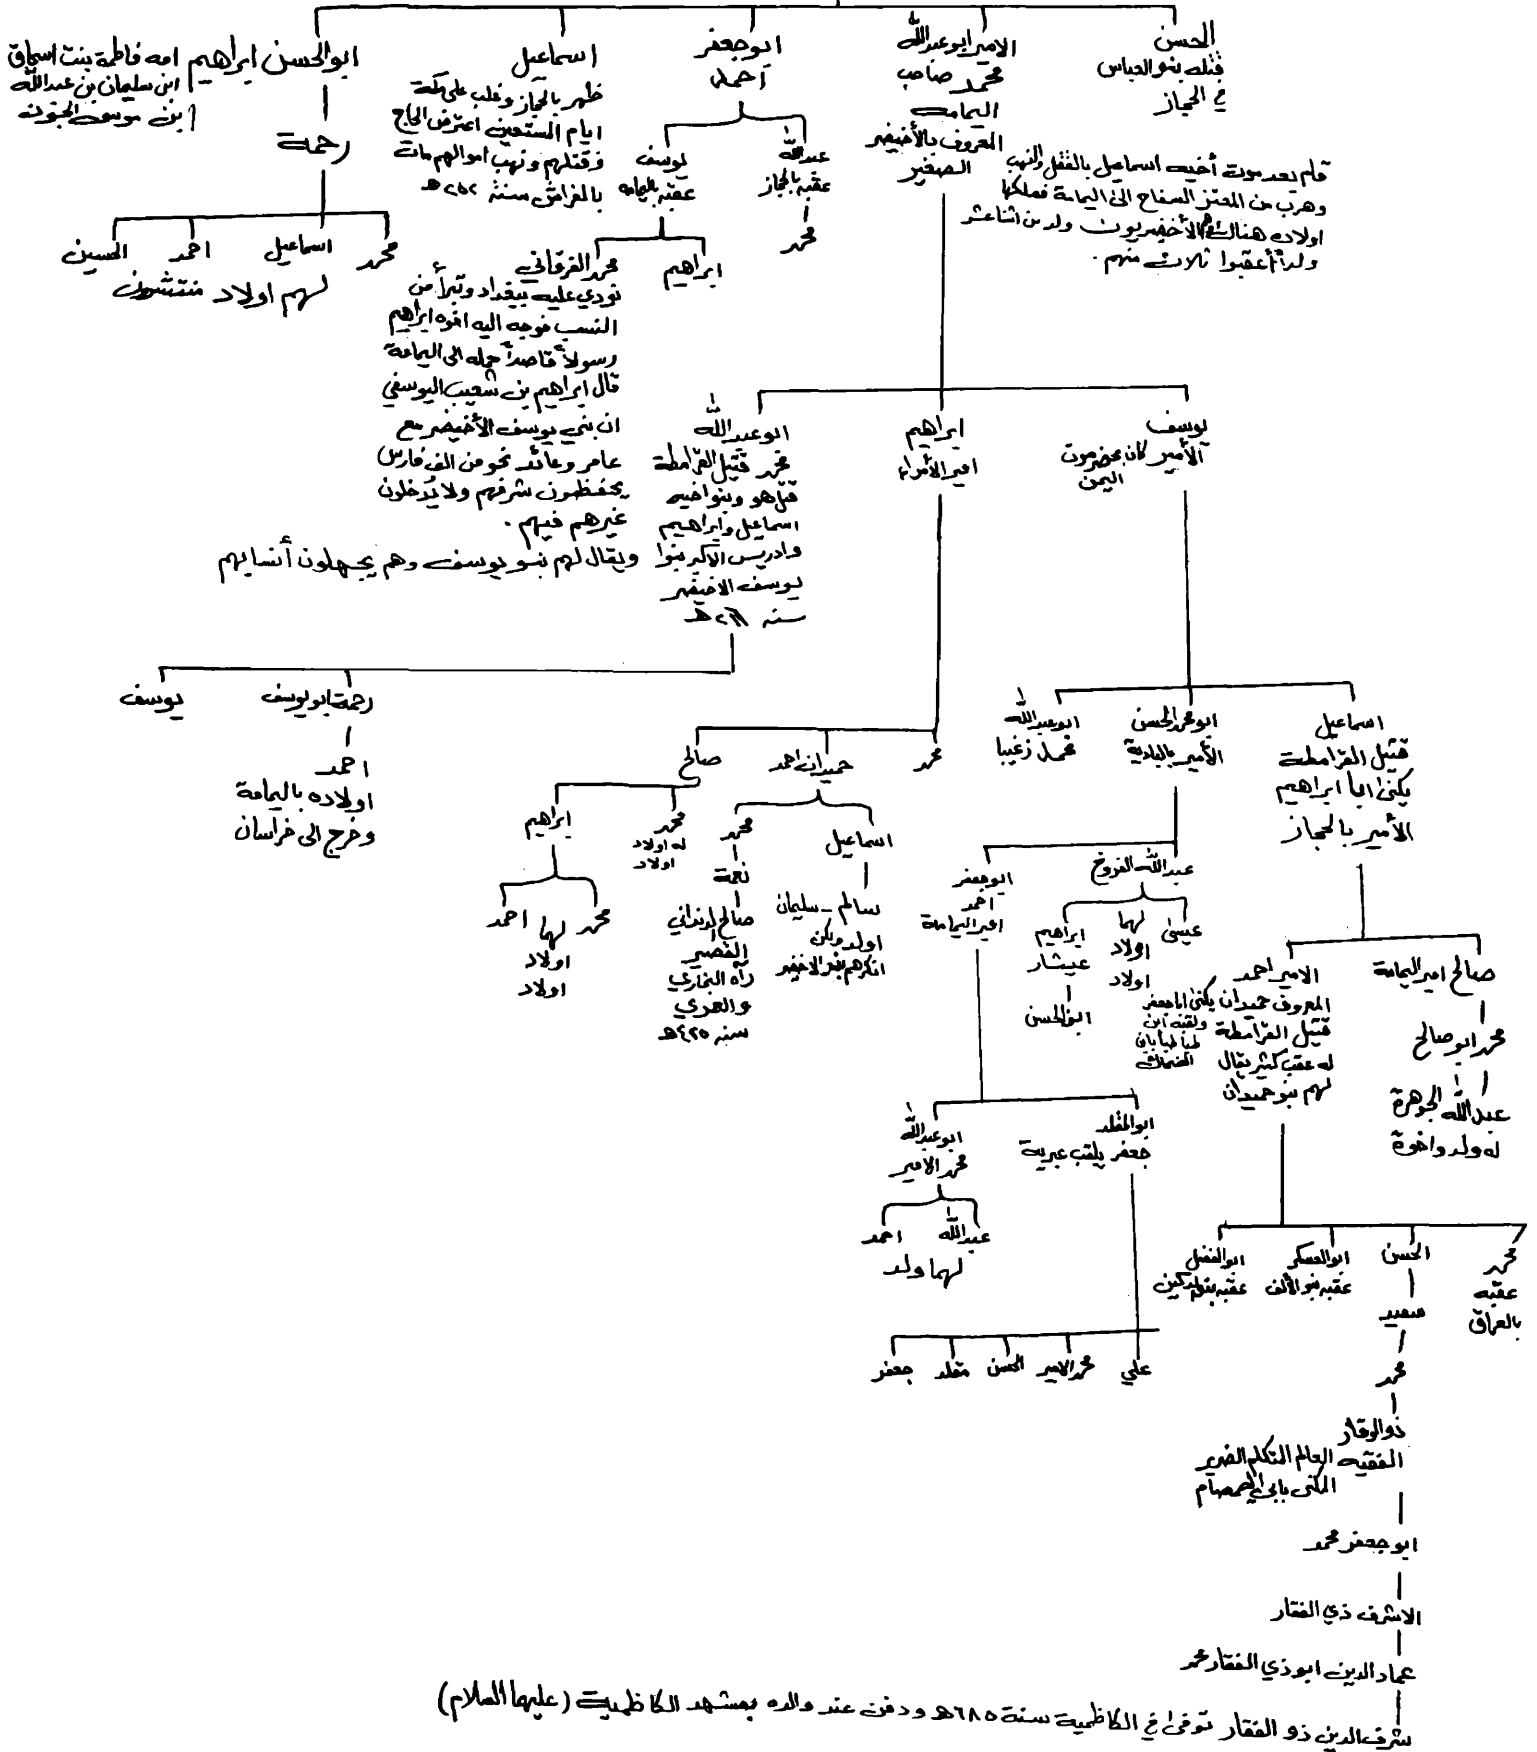 الحسن
قتله بنو العباس
في الحجاز
الامير ابو عبدالله
محمد صاحب
اليمامه
المعروف بالأخيضر
الصغير
قام بعد موت أخيه اسماعيل بالقتل والنهب
وهرب من المعتز السفاح الى اليمامة فملكها
اولاده هناك هم الأخيضريون ولد من اثنا عشر
ولداً أعقبوا ثلاث منهم .
ابو جعفر
احمد
عبدالله
عقبه بالحجاز
محمد
يوسف
عقبه باليمامه
ابراهيم
محمد الفرقاني
نودي عليه ببغداد وتبرأ من
النسب فوجه اليه اخوه ابراهيم
رسولاً قاصداً حمله الى اليمامة
قال ابراهيم بن شعيب اليوسفي
ان بني يوسف الأخيضر مع
عامر وعائد نحو من الف فارس
يحفظون شرفهم ولا يُدخلون
غيرهم فيهم .
ويقال لهم بنو يوسف وهم يجهلون أنسابهم
اسماعيل
ظهر بالحجاز وغلب على مكة
ايام المستعين اعترض الحاج
وقتلهم ونهب اموالهم مات
بالفراش سنة ٢٥٢ هـ
ابو الحسن ابراهيم امه فاطمة بنت اسحاق
ابن سليمان بن عبدالله
ابن موسى الجون
رحمة
محمد
اسماعيل
احمد
الحسين
لهم اولاد منتشرون
يوسف
الأمير كان بحضرموت
اليمن
ابراهيم
امير الأمراء
ابو عبدالله
محمد قتيل القرامطة
قتل هو وبنو اخيه
اسماعيل وابراهيم
وادريس الاكبر بنوا
يوسف الاخيضر
سنه
رحمة ابو يوسف
احمد
اولاده باليمامة
وخرج الى خراسان
يوسف
محمد
حميدان احمد
صالح
اسماعيل
سالم - سليمان
اولد ولكن
انكرهم بنو الاخيضر
محمد
نعمة
صالح الدنداني
القصير
رآه البخاري
والعمري
سنه ٤٢٥ هـ
محمد
له اولاد
اولاد
ابراهيم
محمد
احمد
لهما
اولاد
اولاد
اسماعيل
قتيل القرامطة
يكنى ابا ابراهيم
الأمير بالحجاز
ابو محمد الحسن
الأمير بالبادية
ابو عبدالله
محمد زغيبا
عبدالله الفروخ
عيسى
ابراهيم
عيشار
ابو الحسن
لهما
اولاد
اولاد
ابو جعفر
احمد
امير اليمامة
صالح امير اليمامة
محمد ابو صالح
عبدالله الجوهرة
له ولد واخوة
الامير احمد
المعروف حميدان يكنى ابا جعفر
قتيل القرامطة
له عقب كثير يقال
لهم بنو حميدان
ولقبه ابن
طباطبا بابن
الضحاك
ابو المقلد
جعفر يلقب عبرية
ابو عبدالله
محمد الامير
عبدالله
احمد
لهما ولد
علي
محمد الامير
الحسن
مقلد
جعفر
محمد
عقبه
بالعراق
الحسن
ابو العسكر
عقبه بنو الألف
ابو الفضل
عقبه بنو
سعيد
محمد
ذو الفقار
الفقيه العالم المتكلم الضرير
المكنى بابي الصمصام
ابو جعفر محمد
الاشرف ذي الفقار
عماد الدين ابو ذي الفقار محمد
شرف الدين ذو الفقار توفى في الكاظمية سنة ٦٨٥هـ ودفن عند والده بمشهد الكاظمية (عليهما السلام)